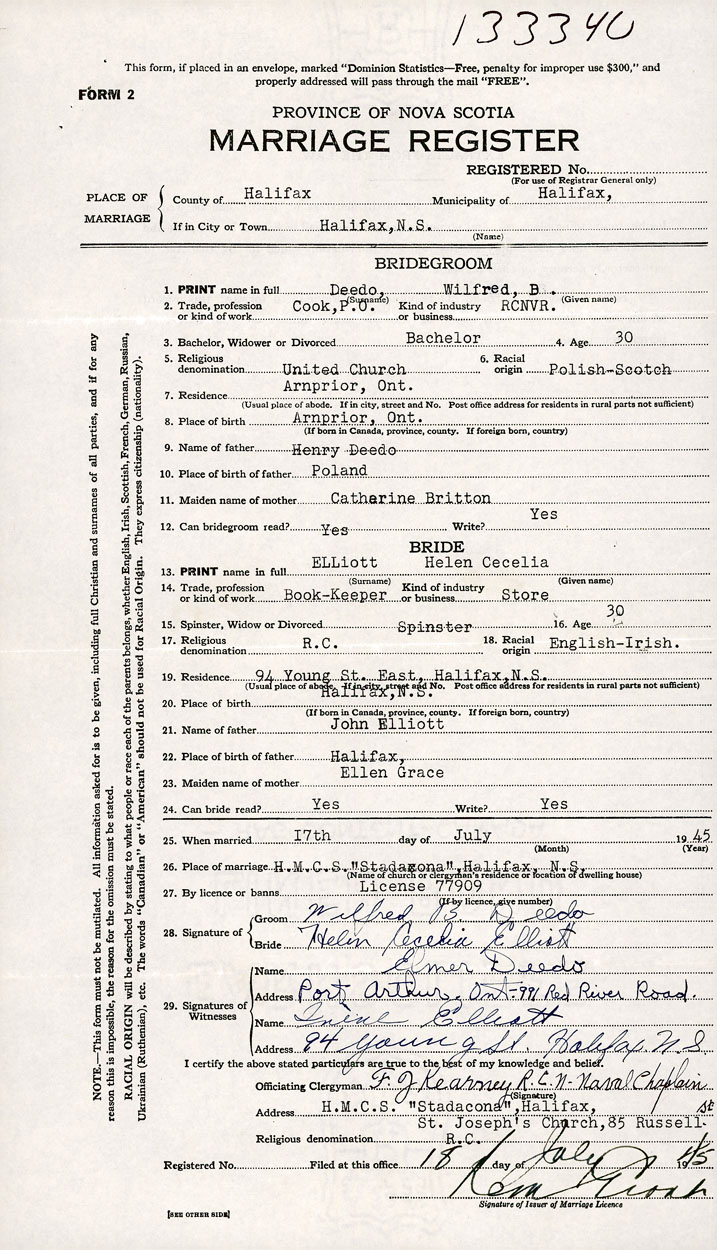 133340
This form, if placed in an envelope, marked "Dominion Statistics—Free, penalty for improper use $300," and
properly addressed will pass through the mail "FREE".
FORM 2
PROVINCE OF NOVA SCOTIA
MARRIAGE REGISTER
REGISTERED No.
(For use of Registrar General only)
PLACE OF MARRIAGE
County of Halifax Municipality of Halifax,
If in City or Town Halifax,N.S.
(Name)
BRIDEGROOM
1. PRINT name in full Deedo, Wilfred, B .
(Surname) (Given name)
2. Trade, profession or kind of work Cook,P.O. Kind of industry or business RCNVR.
3. Bachelor, Widower or Divorced Bachelor 4. Age 30
5. Religious denomination United Church 6. Racial origin Polish-Scotch
7. Residence Arnprior, Ont.
(Usual place of abode. If in city, street and No. Post office address for residents in rural parts not sufficient)
8. Place of birth Arnprior, Ont.
(If born in Canada, province, county. If foreign born, country)
9. Name of father Henry Deedo
10. Place of birth of father Poland
11. Maiden name of mother Catharine Britton
12. Can bridegroom read? Yes Write? Yes
BRIDE
13. PRINT name in full ELLiott Helen Cecelia
(Surname) (Given name)
14. Trade, profession or kind of work Book-Keeper Kind of industry or business Store
15. Spinster, Widow or Divorced Spinster 16. Age 30
17. Religious denomination R.C. 18. Racial origin English-Irish.
19. Residence 94 Young St. East, Halifax,N.S.
(Usual place of abode. If in city, street and No. Post office address for residents in rural parts not sufficient)
20. Place of birth Halifax,N.S.
(If born in Canada, province, county. If foreign born, country)
21. Name of father John Elliott
22. Place of birth of father Halifax,
23. Maiden name of mother Ellen Grace
24. Can bride read? Yes Write? Yes
25. When married I7th day of July 1945
(Month) (Year)
26. Place of marriage H.M.C.S."Stadacona",Halifax, N.S.
(Name of church or clergyman's residence or location of dwelling house)
27. By licence or banns License 77909
(If by licence, give number)
28. Signature of
Groom Wilfred B. Deedo
Bride Helen Cecelia Elliott
29. Signatures of Witnesses
Name Elmer Deedo
Address Port Arthur, Ont-991 Red River Road.
Name Irene Elliott
Address 94 Young St. Halifax N.S
I certify the above stated particulars are true to the best of my knowledge and belief.
Officiating Clergyman F. J Kearney R.C.N. Naval Chaplain
(Signature)
Address H.M.C.S. "Stadacona",Halifax,
St. Joseph's Church,85 Russell. St
Religious denomination R.C.
Registered No. Filed at this office 18 day of July 1945
Signature of Issuer of Marriage Licence
[SEE OTHER SIDE]
NOTE.—This form must not be mutilated. All information asked for is to be given, including full Christian and surnames of all parties, and if for any
reason this is impossible, the reason for the omission must be stated.
RACIAL ORIGIN will be described by stating to what people or race each of the parents belongs, whether English, Irish, Scottish, French, German, Russian,
Ukrainian (Ruthenian), etc. The words "Canadian" or "American" should not be used for Racial Origin. They express citizenship (nationality).